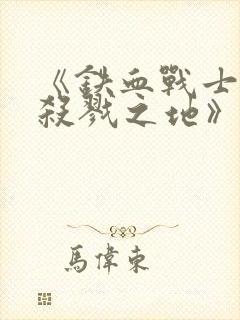 《鉄血戰士
殺戮之地》
馬偉東